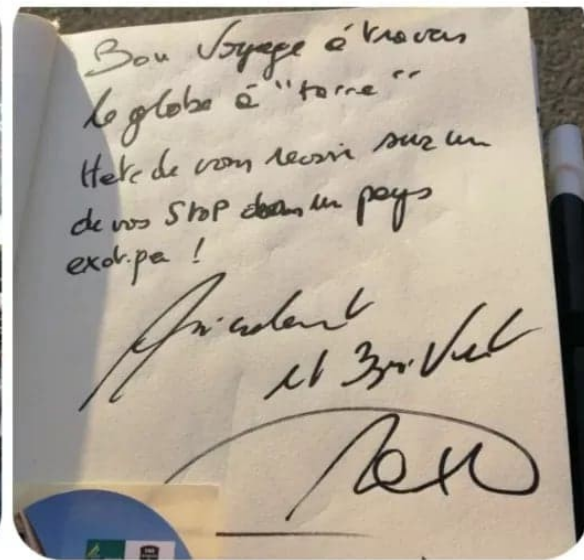 Bon Voyage à travers
le globe à "terre"
Hate de vous revoir sur un
de vos StoP dans un pays
exotique !
Amicalement
et Bon Vent